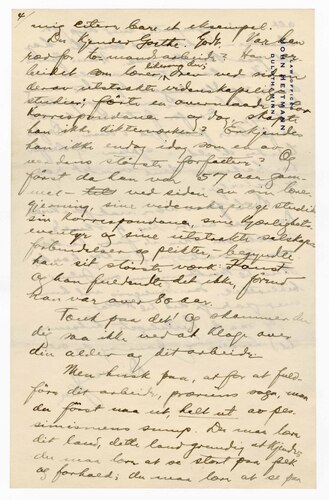 4/
mig citere bare et eksempel.
Du kjender Goethe. Godt. Var han
LAW OFFICES
JOHN HEITMANN
DULUTH, MINN.
studier; først en overmaade stor
korrespondance og dog, skapte
han ikke diktverker? Erkjendes
han ikke endog idag som en av
verdens største forfattere? Og
først da han var 57 aar gam-
mel — ved siden av sin
gjerning, sine videnskapelige studier
sin korrespondance, sine kjærligheds
eventyr og sine utstrakte selskaps
forbindelser og plikter, begyndte
han sit største verk: Faust
Og han fuldendte det ikke, førend
han var over 80 aar.
Tænk paa det! Og skammer
dig saa ikke ved at klage over
din alder og dit arbeide.
Men husk paa, at for at fuld-
føre dit arbeide, præriens saga, maa
du først maa ut, helt ut av pes-
simismens sump. Du maa love
dit land, dette land
du maa love at se stort paa folk
og forhold; du maa love at se paa